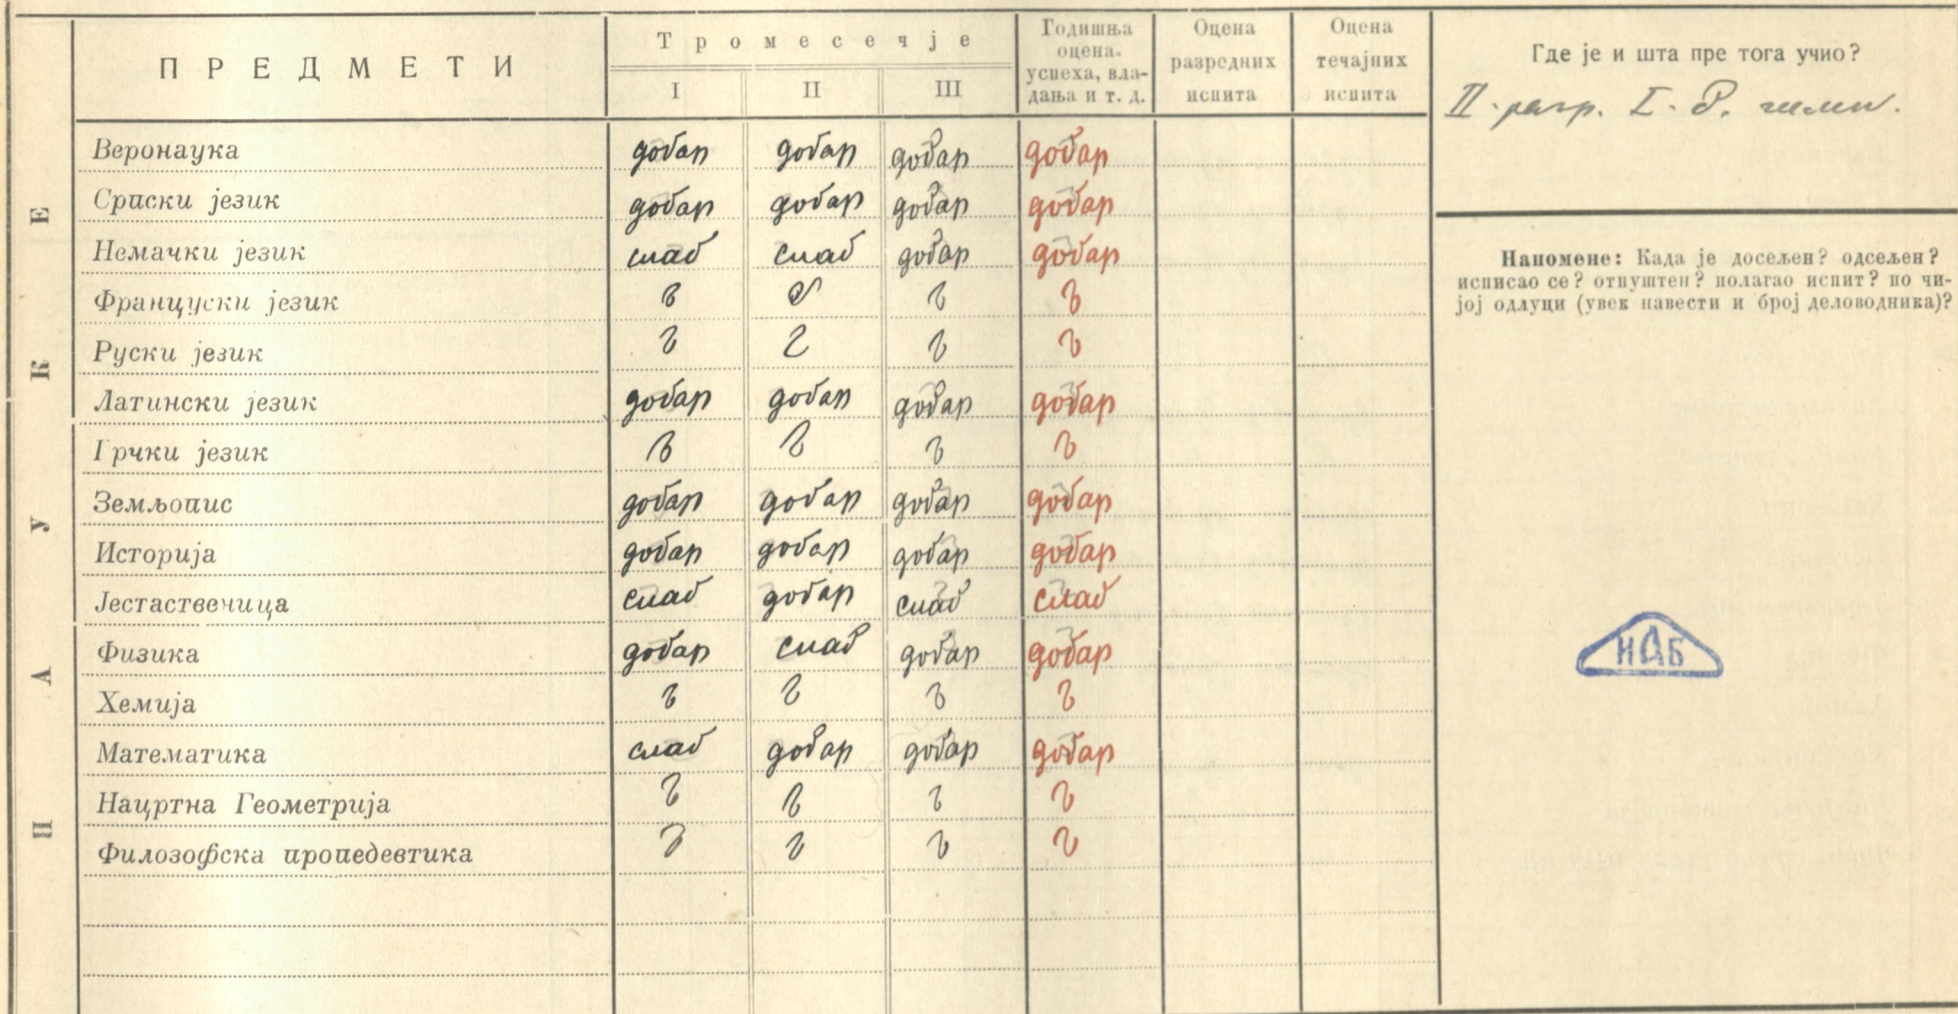 НАУКЕ
ПРЕДМЕТИ Тромесечје Годишња оцена успеха, вла- дања и т. д. Оцена разредних испита Оцена течајних испита
I II III
Где је и шта пре тога учио?
II разр. гимн.
Веронаука добар добар добар добар
Српски језик добар добар добар добар
Немачки језик слаб слаб добар добар
Француски језик
Руски језик
Латински језик добар добар добар добар
Грчки језик
Земљопис добар добар добар добар
Историја добар добар добар добар
Јестаственица слаб добар слаб слаб
Физика добар слаб добар добар
Хемија
Математика слаб добар добар добар
Нацртна Геометрија
Филозофска пропедевтика
Напомене: Када је досељен? одсељен?
исписао се? отпуштен? полагао испит? по чи-
јој одлуци (увек навести и број деловодника)?
ИАБ